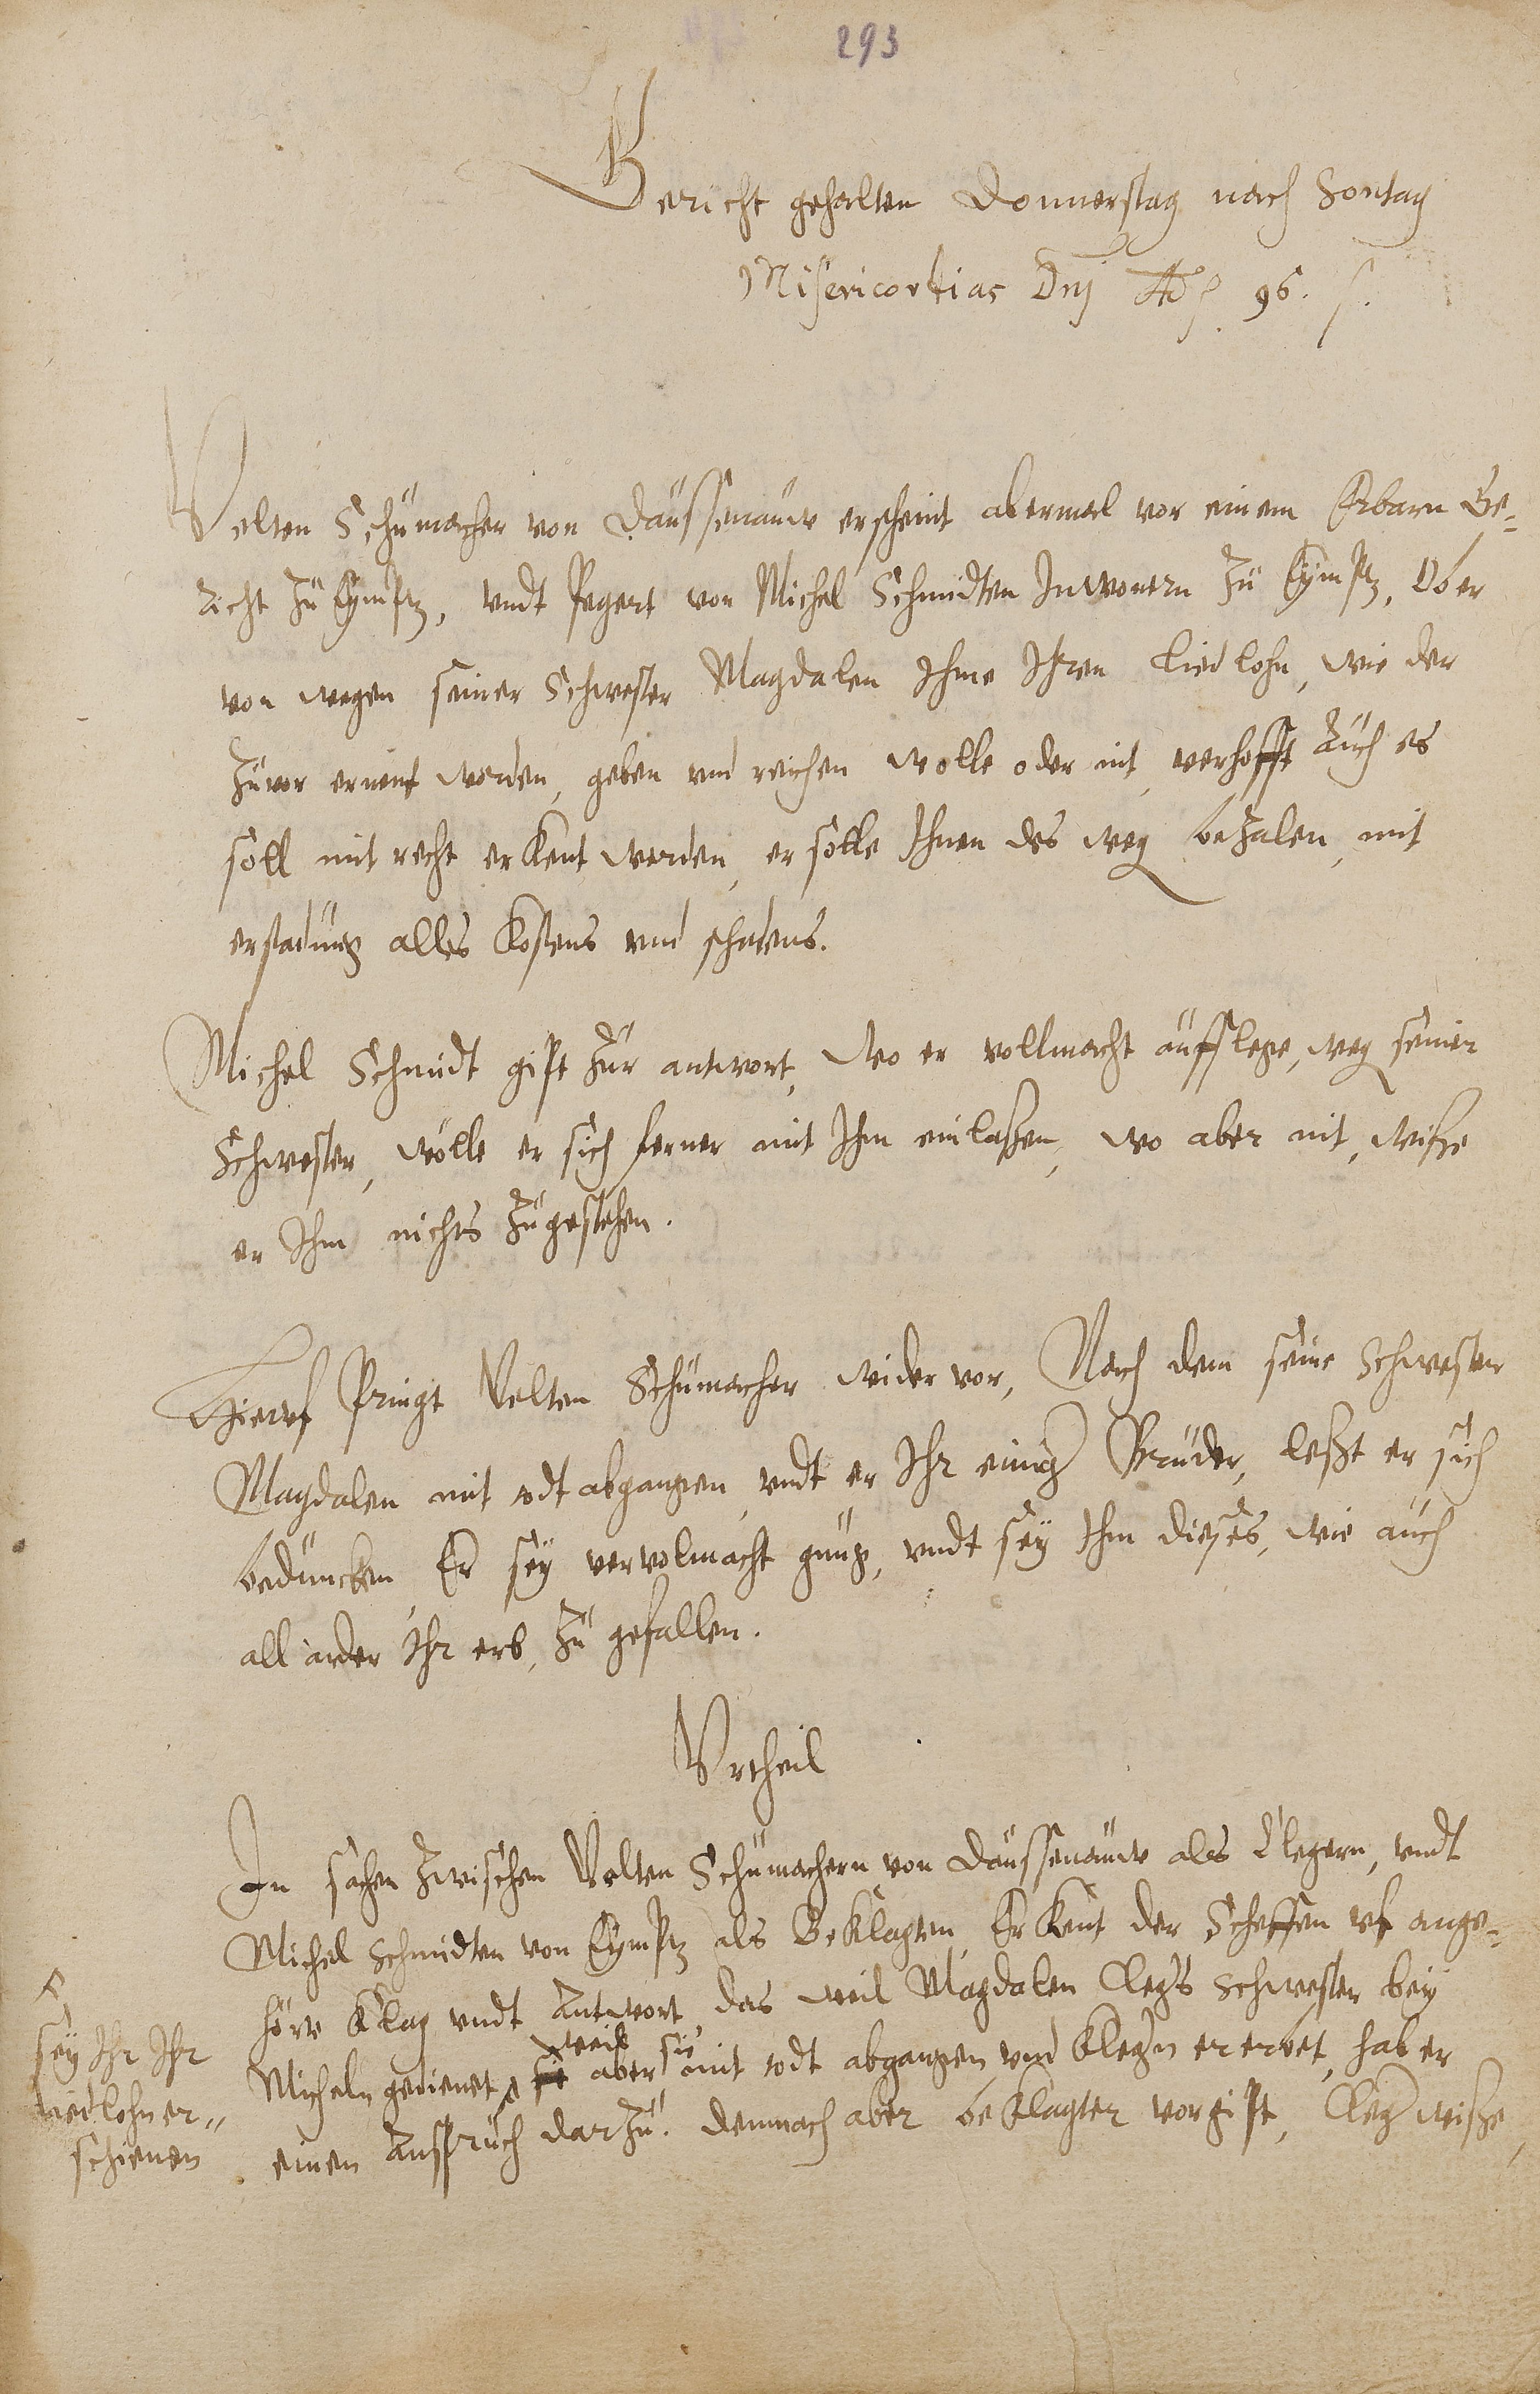 293
Gericht gehalten Donnerstag nach Sontag
Misericordias Dnj Ao 96.
Velten Schumacher von Daussenauw erscheint abermal vor einem Erbarn Ge¬
richt zu Eymptz, vndt Begert von Michel Schmidten Inwonern zu Eymptz, Ob er
von wegen seiner Schwester Magdalen Ihme Ihren Liedlohn, wie der
zuvor ernent worden, geben vnd reichen wolle oder nit, verhofft auch es
soll mit recht erkent werden, er solle Ihnen des weg bezalen, mit
erstadung alles Kostens vnd schadens.
Michel Schmidt gipt zur antwort, wo er vollmacht aufflege, weg seiner
Schwester, wolle er sich ferner mit Ihm einlaßen, wo aber nit, wiße
er Ihm nichts zugestehen.
Hieruf Pringt Velten Schumacher wider vor, Nach dem seine Schwester
Magdalen mit todt abgangen, vndt er Ihr einig Bruder, leßt er sich
bedüncken, Er sey vervolmacht gnug, vndt sey Ihm dießes, wie auch
all ander Ihr erb, zu gefallen.
Vrtheil
In sachen zwischen Velten Schumachern von Daussenauw als Clegern, vndt
Michel Schmidten von Eymptz als Beklagten, Erkent der Scheffen vf ange¬
hörte Klag vndt Antwort, das weil Magdalen Clegers Schwester bey
weil sie
Micheln gedienet, aber mit todt abgangen vnd Klegern ererbet, hab er
sey Ihr Ihr
liedlohn er¬
schienen
einen Anspruch darzu. demnach aber beklagter vorgipt, Cleger wiße